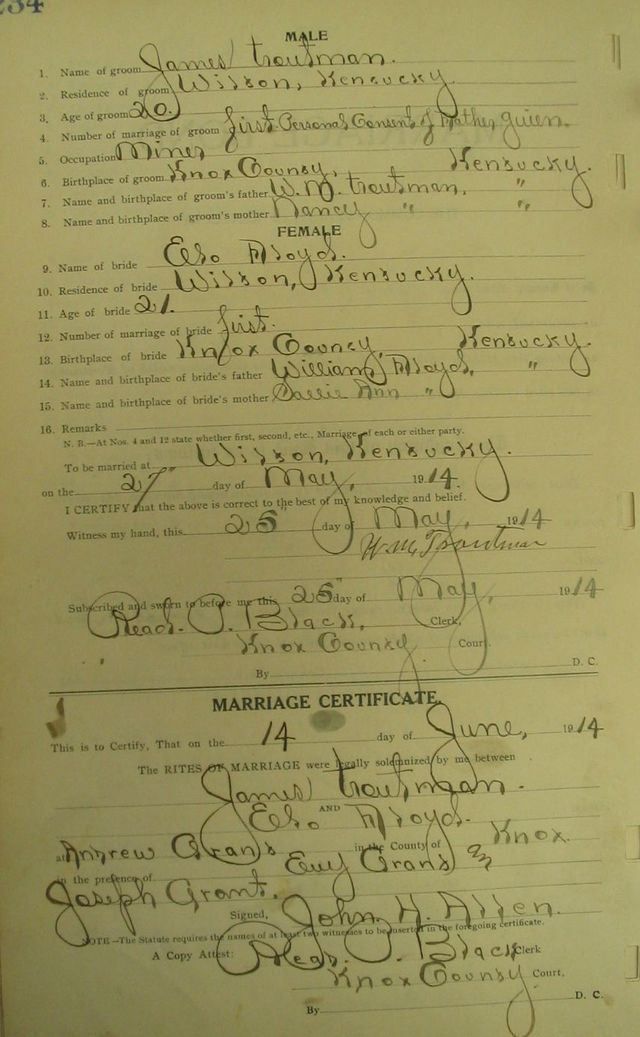 234
MALE
1. Name of groom James Troutman.
2. Residence of groom Wilson, Kentucky.
3. Age of groom 20.
4. Number of marriage of groom first. Personal Consent of Father given.
5. Occupation Miner
6. Birthplace of groom Knox County, Kentucky.
7. Name and birthplace of groom's father W. M. Troutman, "
8. Name and birthplace of groom's mother Nancy " "
FEMALE
9. Name of bride Floyd.
10. Residence of bride Wilson, Kentucky.
11. Age of bride 21.
12. Number of marriage of bride first.
13. Birthplace of bride Knox County, Kentucky.
14. Name and birthplace of bride's father William Floyd, "
15. Name and birthplace of bride's mother Sallie Ann "
16. Remarks
N. B.—At Nos. 4 and 12 state whether first, second, etc., Marriage of each or either party.
To be married at Wilson, Kentucky.
on the 27" day of May, 1914.
I CERTIFY that the above is correct to the best of my knowledge and belief.
Witness my hand, this 25" day of May, 1914
W. M. Troutman
Subscribed and sworn to before me this 25" day of May, 1914
Read. P. Black, Clerk,
Knox County Court.
By D. C.
MARRIAGE CERTIFICATE.
This is to Certify, That on the 14 day of June, 1914
The RITES OF MARRIAGE were legally solemnized by me between
James Troutman.
AND
Floyd.
at Andrew Grants in the County of Knox.
in the presence of Grant &
Joseph Grant.
Signed, John H. Allen.
NOTE—The Statute requires the names of at least two witnesses to be inserted in the foregoing certificate.
A Copy Attest: Read. P. Black Clerk
Knox County Court,
By D. C.